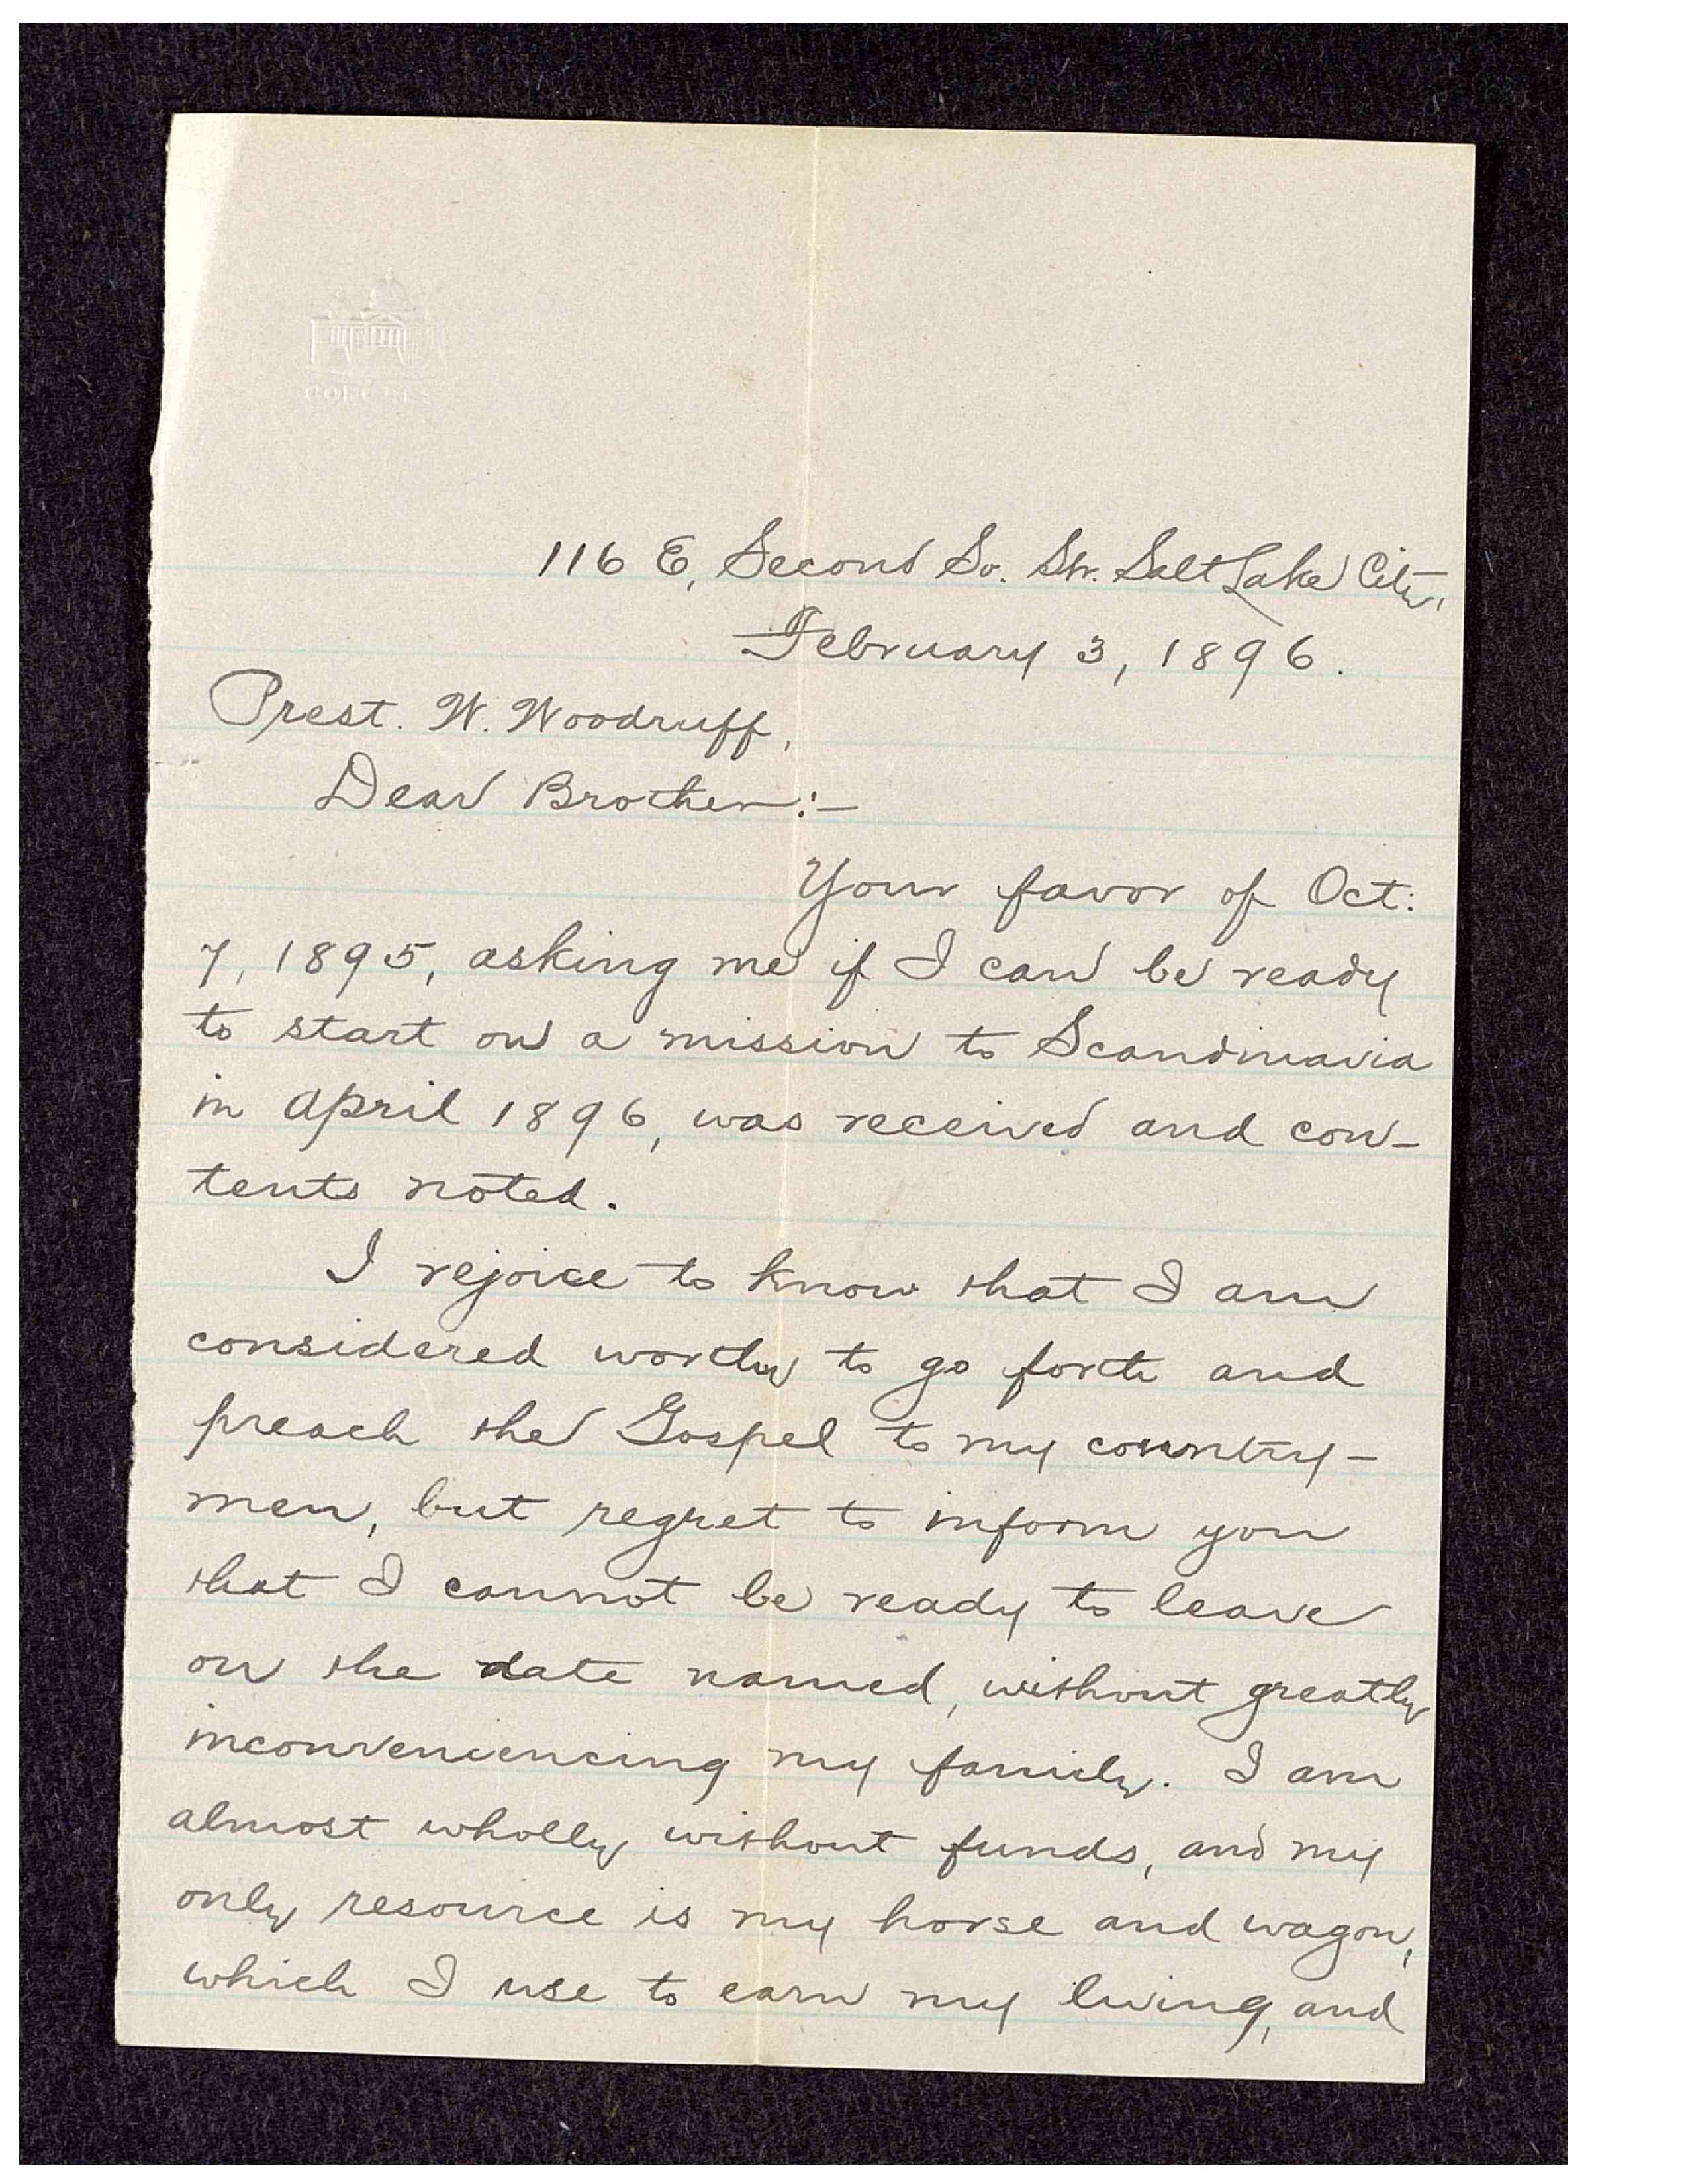 CONGRESS
116 E, Second So. Str. Salt Lake City,
February 3, 1896.
Prest. W. Woodruff,
Dear Brother:-
Your favor of Oct.
7, 1895, asking me if I can be ready
to start on a mission to Scandinavia
in April 1896, was received and con-
tents noted.
I rejoice to know that I am
considered worthy to go forth and
preach the Gospel to my country-
men, but regret to inform you
that I cannot be ready to leave
on the date named, without greatly
inconveniencing my family. I am
almost wholly without funds, and my
only resource is my horse and wagon,
which I use to earn my living, and